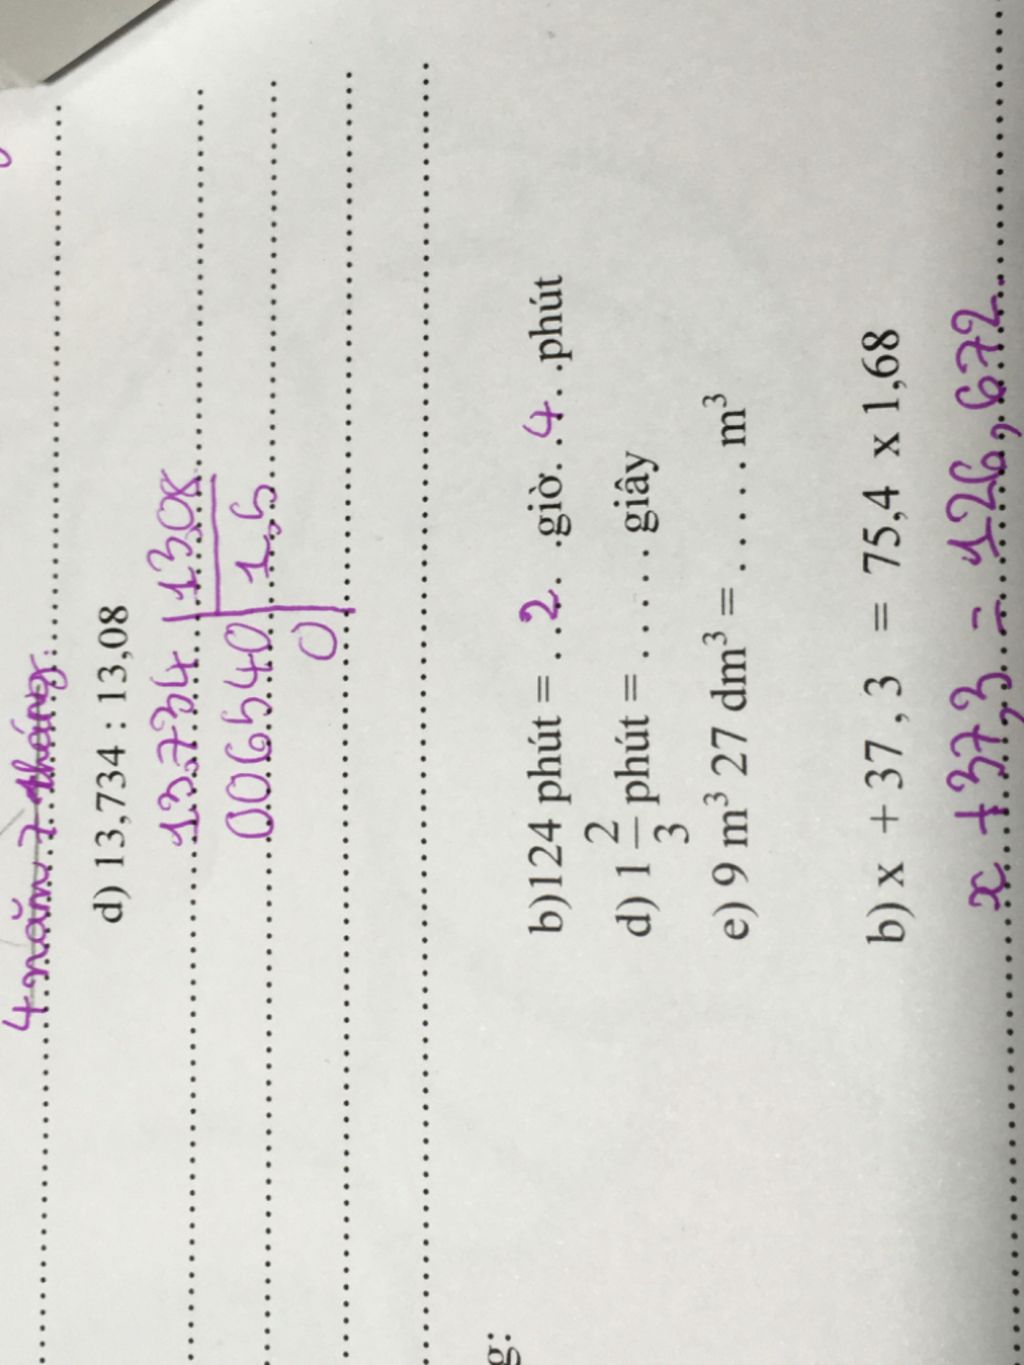 4 năm 7 tháng.
d) 13,734 : 13,08
13,734 13,08
006540 1,5
0
b)124 phút = . .2. .giờ. .4. .phút
d) 1 2/3 phút = . . . . . . giây
e) 9 m³ 27 dm³ = . . . . . . m³
g:
b) x + 37 ,3 = 75,4 x 1,68
x + 37,3 = 126,672